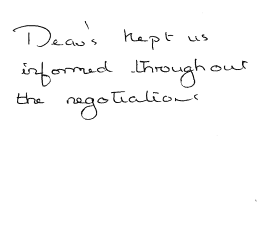 Dean's kept us
informed throughout
the negotiations